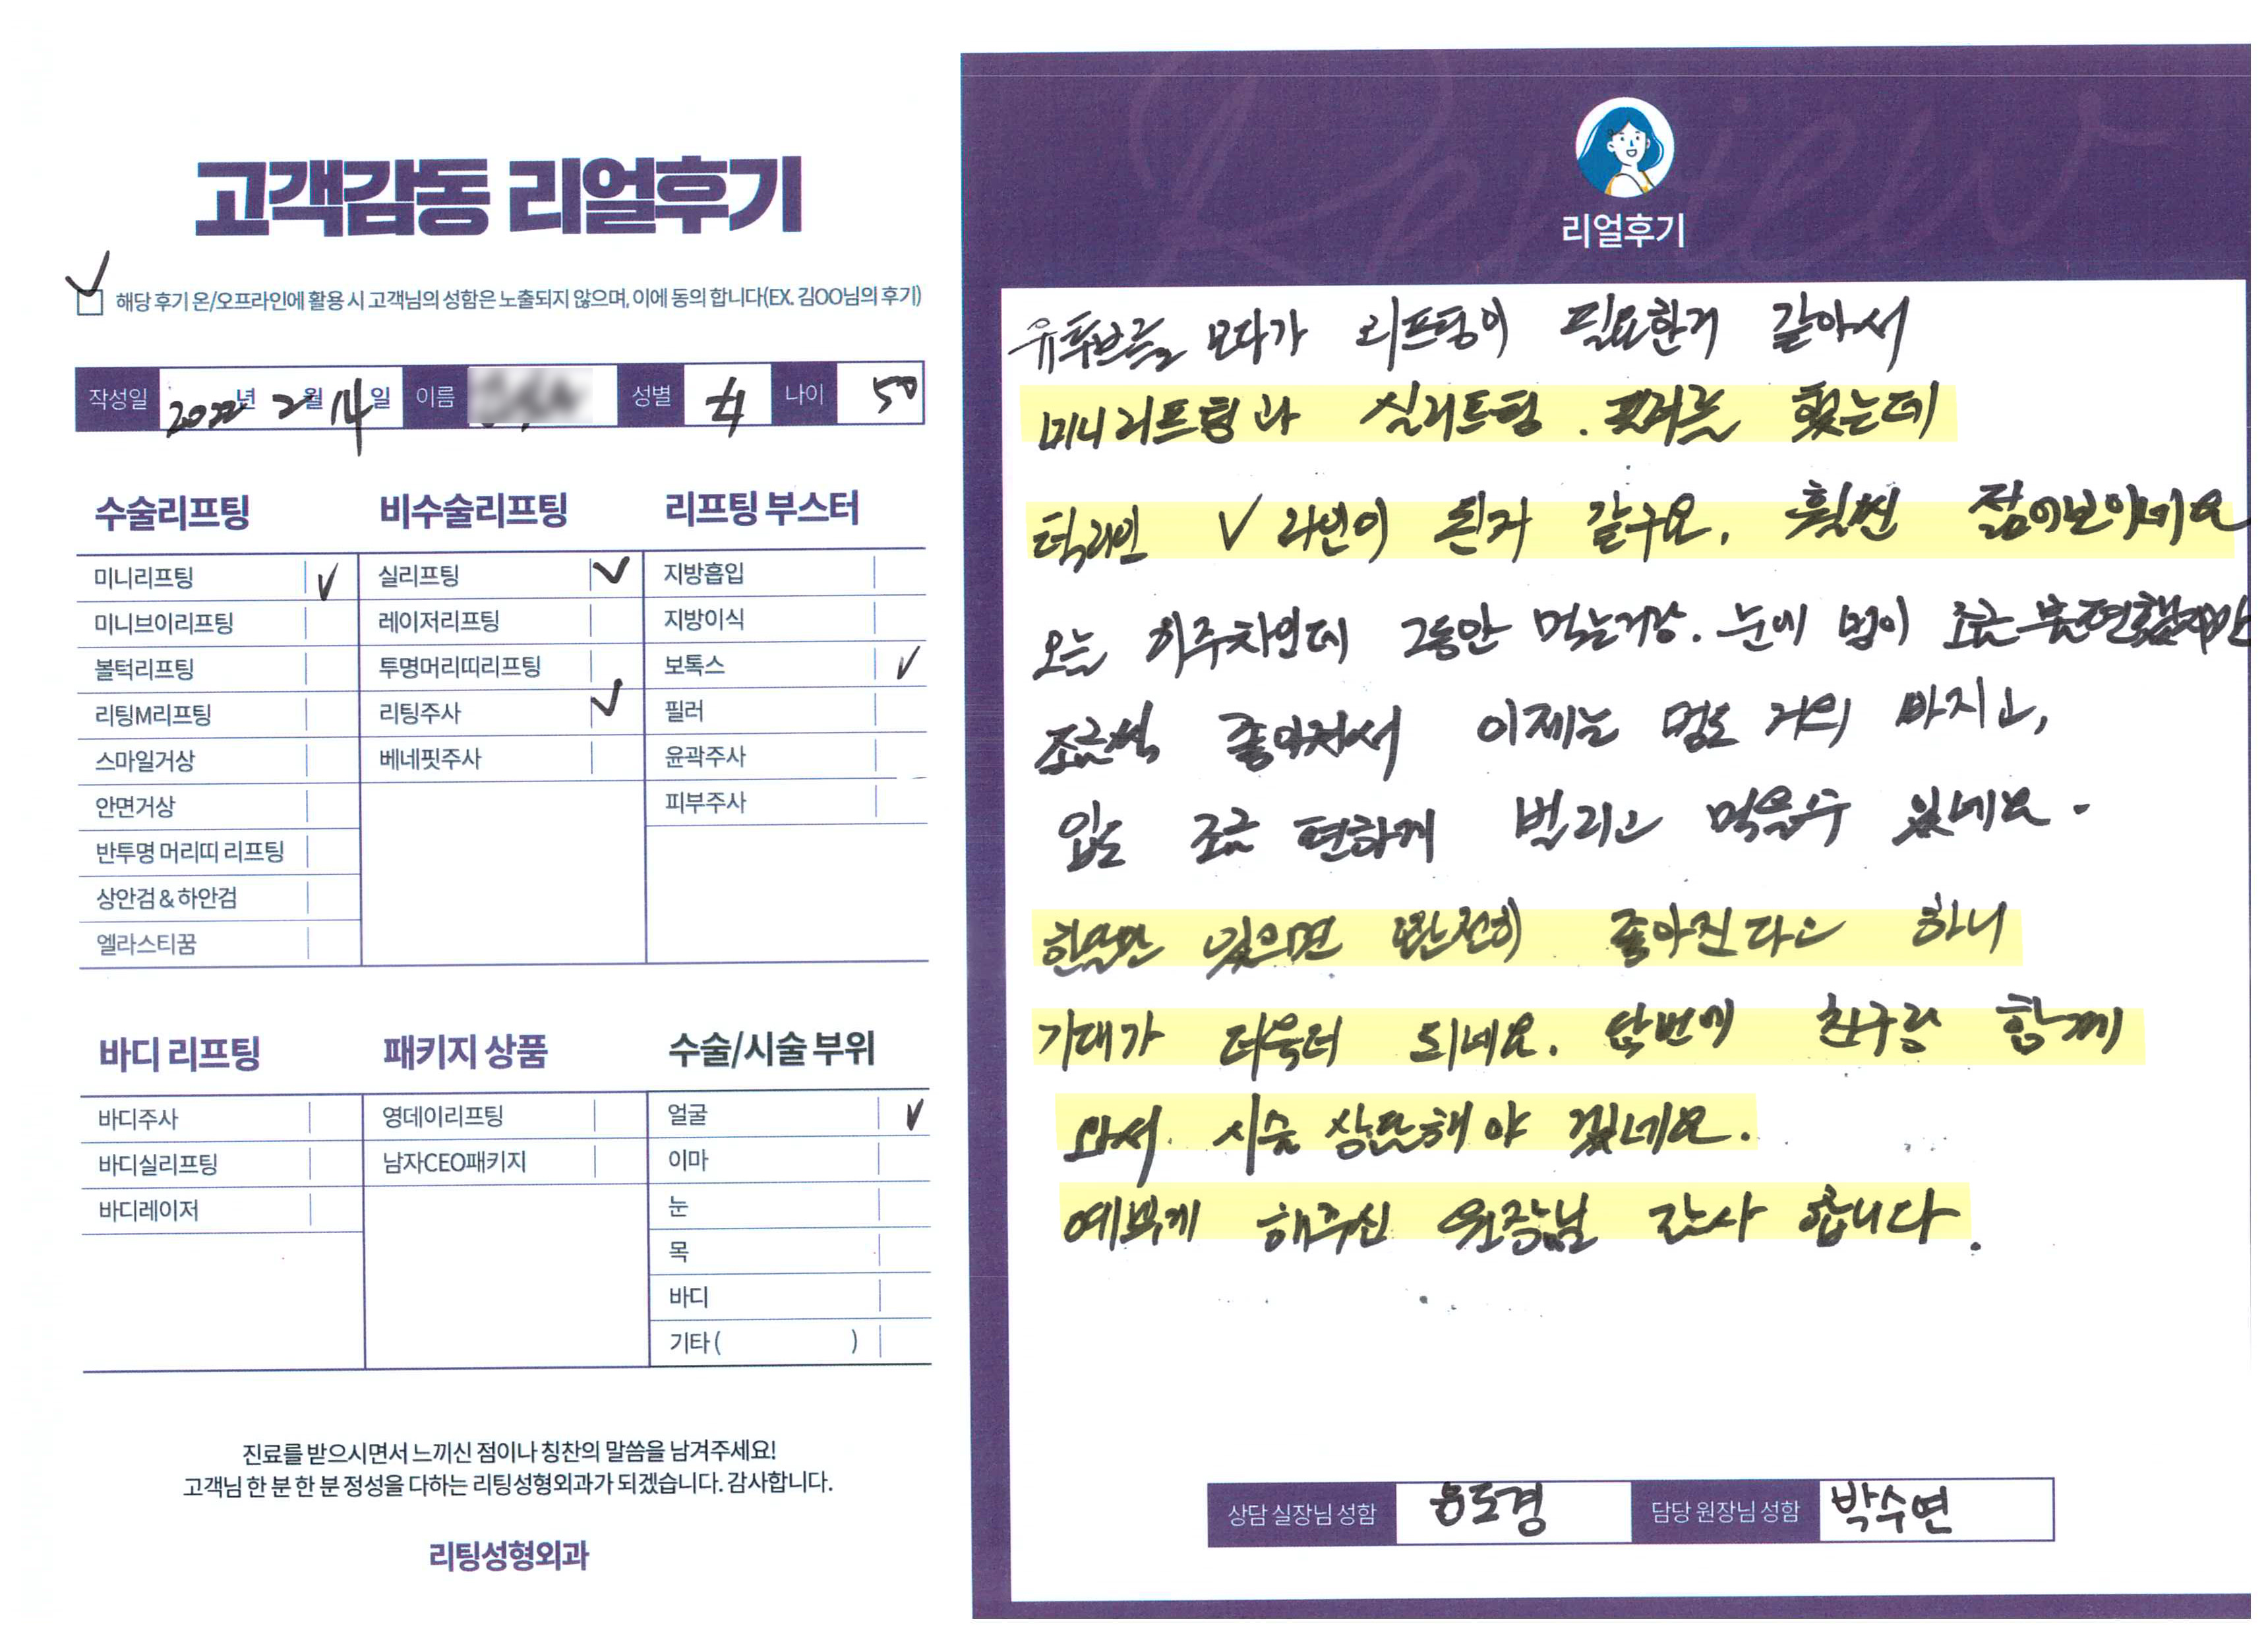 고객감동 리얼후기
해당 후기 온/오프라인에 활용 시 고객님의 성함은 노출되지 않으며, 이에 동의 합니다(EX. 김OO님의 후기)
작성일 2022년 2월 14일 이름 성별 녀 나이 50
수술리프팅
미니리프팅 ✓
미니브이리프팅
볼턱리프팅
리팅M리프팅
스마일거상
안면거상
반투명 머리띠 리프팅
상안검 & 하안검
엘라스티꿈
비수술리프팅
실리프팅 ✓
레이저리프팅
투명머리띠리프팅
리팅주사 ✓
베네핏주사
리프팅 부스터
지방흡입
지방이식
보톡스 ✓
필러
윤곽주사
피부주사
바디 리프팅
바디주사
바디실리프팅
바디레이저
패키지 상품
영데이리프팅
남자CEO패키지
수술/시술 부위
얼굴 ✓
이마
눈
목
바디
기타 ( )
진료를 받으시면서 느끼신 점이나 칭찬의 말씀을 남겨주세요!
고객님 한 분 한 분 정성을 다하는 리팅성형외과가 되겠습니다. 감사합니다.
리팅성형외과
Review
리얼후기
유튜브를 보다가 리프팅이 필요한거 같아서
미니리프팅과 실리프팅. 했는데
턱라인 V라인이 된거 같구요. 훨씬 젊어보이네요
오늘 주차인데 그동안 먹는거랑. 눈에 멍이 조금 불편했지만
조금씩 좋아져서 이제는 멍도 거의 빠지고,
입도 조금 편하게 벌리고 먹을수 있네요.
한달만 있으면 완전히 좋아진다고 하니
기대가 더욱더 되네요. 담번에 친구랑 함께
와서 시술 상담해야 겠네요.
예쁘게 해주신 원장님 감사 합니다.
상담 실장님 성함 용도경 담당 원장님 성함 박수연